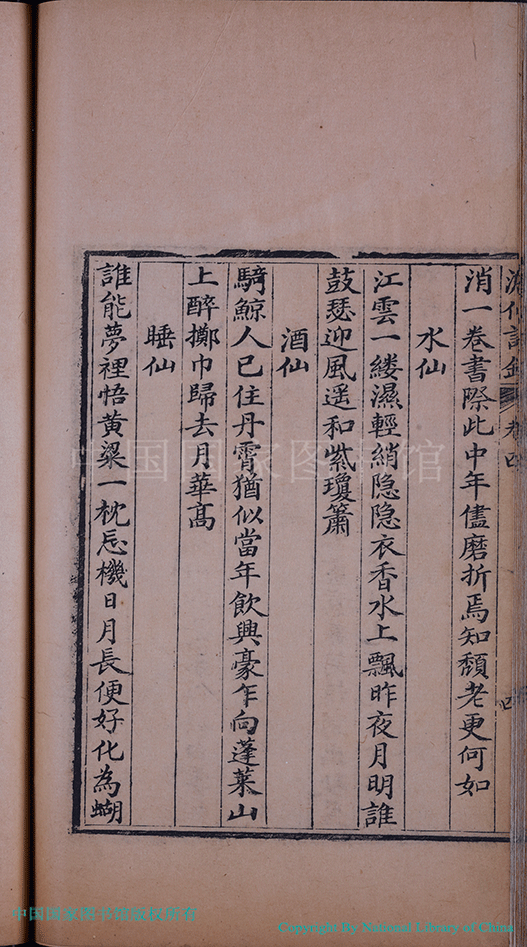 卷四
四
消一卷書際此中年儘磨折焉知頽老更何如
水仙
江雲一縷濕輕綃隐隐衣香水上飄昨夜月明誰
鼓瑟迎風遥和紫瓊簫
酒仙
騎鯨人已住丹霄猶似當年飲興豪乍向蓬萊山
上醉擲巾歸去月華高
睡仙
誰能夢裡悟黄粱一枕忘機日月長便好化為蝴
中国国家图书馆
中国国家图书馆版权所有
Copyright By National Library of China